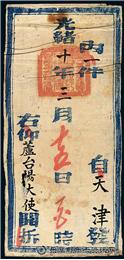 內一件
自天津發
光緒十年二月十五日 時
右仰蘆台陽大使開拆